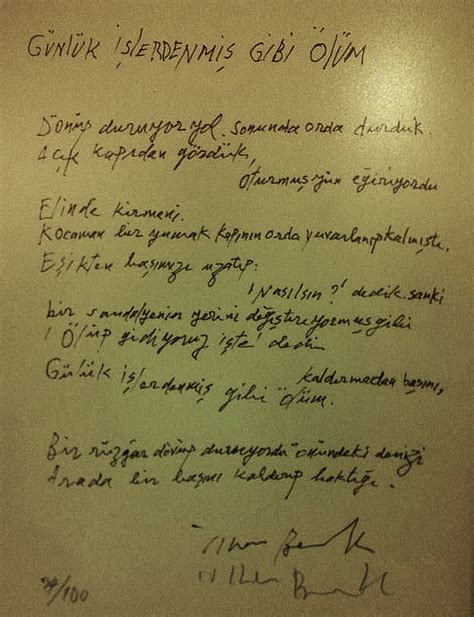 GÜNLÜK İŞLERDENMİŞ GİBİ ÖLÜM
Dönüp duruyor yol. Sonunda orda durduk.
Açık kapıdan gördük,
Oturmuş yün eğiriyordu
Elinde kirmeni.
Kocaman bir yumak kapının orda yuvarlanıp kalmıştı.
Eşikten başımızı uzatıp:
'Nasılsın?' dedik. sanki
bir sandalyenin yerini değiştiriyormuş gibi
'Ölüp gidiyoruz işte' dedi
kaldırmadan başını,
Gülük işlerdenmiş gibi ölüm.
Bir rüzgâr dönüp duruyordu önündeki denizi
Arada bir başını kaldırıp baktığı.
İlhan Berk
İlhan Berk
/100